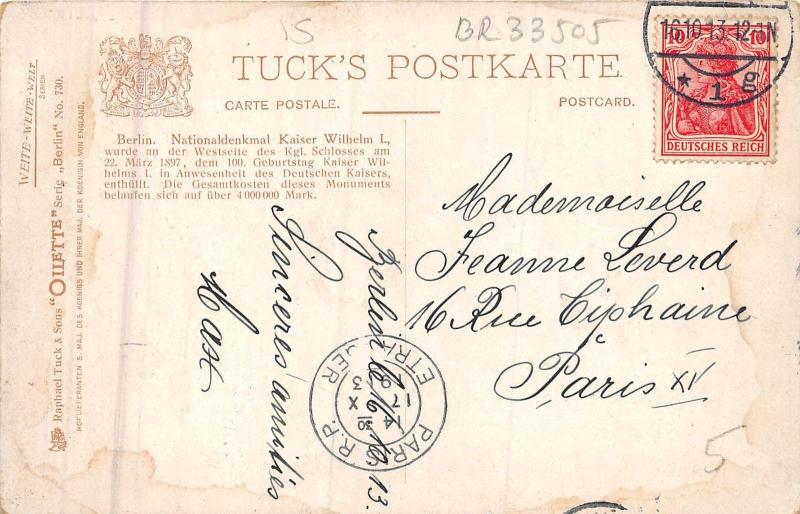 IS
BR33505
TUCK'S POSTKARTE
CARTE POSTALE.
POSTCARD.
WEITE-WEITE-WELT
SERIEN
Raphael Tuck & Sons "OILETTE" Serie „Berlin" No. 730.
HOFLIEFERANTEN S. MAJ. DES KOENIGS UND IHRER MAJ. DER KOENIGIN VON ENGLAND.
Berlin. Nationaldenkmal Kaiser Wilhelm I.,
wurde an der Westseite des Kgl. Schlosses am
22. März 1897, dem 100. Geburtstag Kaiser Wil-
helms I. in Anwesenheit des Deutschen Kaisers,
enthüllt. Die Gesamtkosten dieses Monuments
belaufen sich auf über 4000000 Mark.
16.10.13.12-1N
* 1 g
10 10
DEUTSCHES REICH
Mademoiselle
Jeanne Leverd
16 Rue Tiphaine
à
Paris XV
Berlin 16.10.13.
Sincères amitiés
PARIS R.P.
ETRANGER
14 30
17 X
3
5